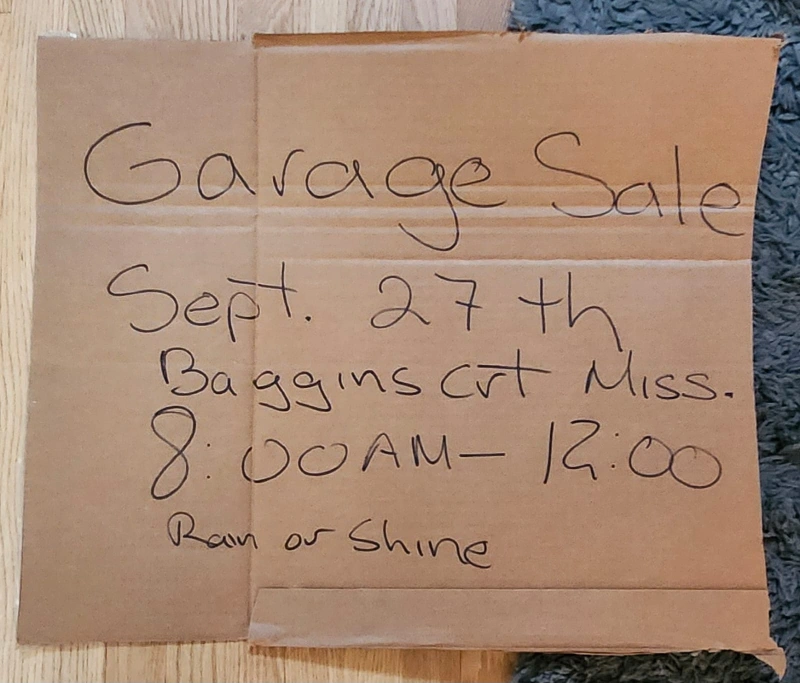 Garage Sale
Sept. 27 th
Baggins Crt Miss.
8:00AM— 12:00
Rain or Shine